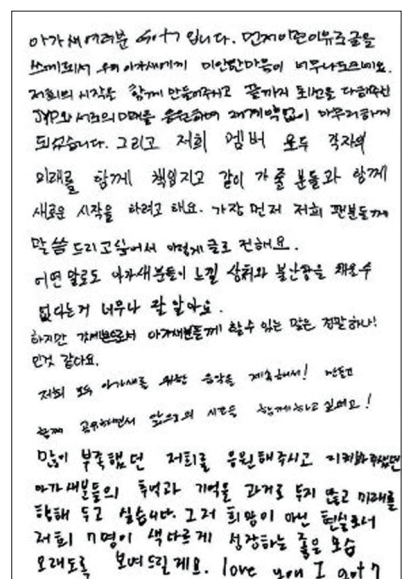 아가새여러분 GOT7 입니다. 먼저 이런이유로 글을
쓰게되서 우리 아가새에게 미안한마음이 너무나도크네요.
저희의 시작을 함께 만들어주시고 끝까지 최선을 다해주신
JYP와 서로의 미래를 응원하며 재계약없이 마무리하게
되었습니다. 그리고 저희 멤버 모두 각자의
미래를 함께 책임지고 같이 가 줄 분들과 함께
새로운 시작을 하려고 해요. 가장 먼저 저희 팬분들께
말씀 드리고싶어서 이렇게 글로 전해요.
어떤 말로도 아가새분들이 느낄 상처와 불안감을 채울수
없다는거 너무나 잘 알아요.
하지만 갓세븐으로서 아가새분들께 할수 있는 말은 정말 하나!
인것 같아요.
저희 모두 아가새를 위한 음악을 계속해서! 만들고
함께 공유하면서 앞으로의 시간을 함께하고 싶다고!
많이 부족했던 저희를 응원해주시고 지켜봐주셨던
아가새분들의 추억과 기억을 과거로 두지 않고 미래를
향해 두고 싶습니다. 그저 희망이 아닌 현실로서
저희 7명이 색다르게 성장하는 좋은 모습
오래도록 보여드릴게요. love you I got7